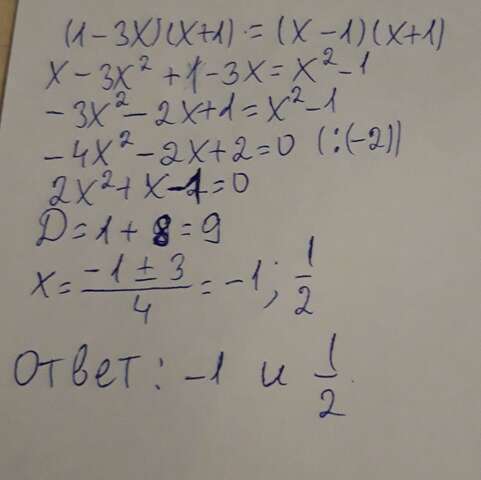 (1-3x)(x+1) = (x-1)(x+1)
x - 3x² + 1 - 3x = x² - 1
-3x² - 2x + 1 = x² - 1
-4x² - 2x + 2 = 0 (:(-2))
2x² + x - 1 = 0
D = 1 + 8 = 9
x = (-1 ± 3)/4 = -1; 1/2
Ответ: -1 и 1/2.